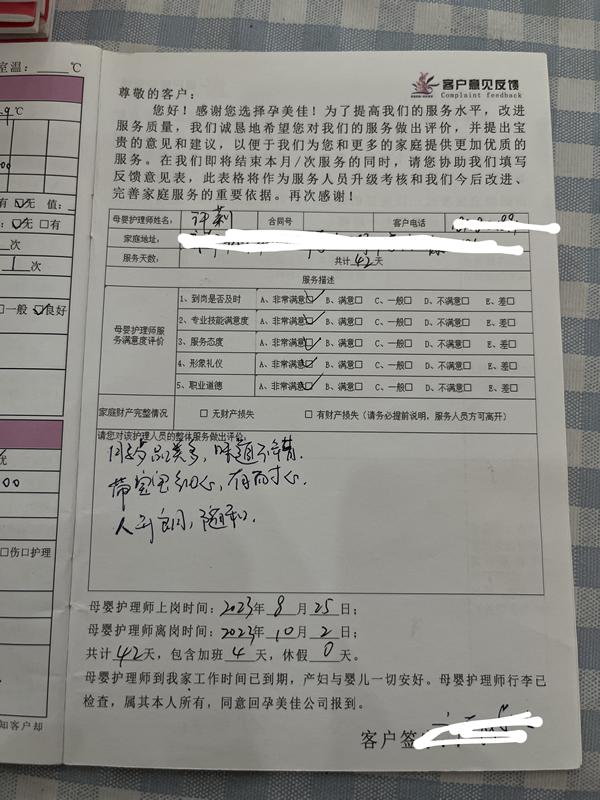 室温：____℃
客户意见反馈
Complaint feedback
尊敬的客户：
您好！感谢您选择孕美佳！为了提高我们的服务水平，改进
服务质量，我们诚恳地希望您对我们的服务做出评价，并提出宝
贵的意见和建议，以便于我们为您和更多的家庭提供更加优质的
服务。在我们即将结束本月/次服务的同时，请您协助我们填写
反馈意见表，此表格将作为服务人员升级考核和我们今后改进、
完善家庭服务的重要依据。再次感谢！
母婴护理师姓名： 许莉 合同号 客户电话
家庭地址：
服务天数： 共计42天
服务描述
母婴护理师服务满意度评价
1、到岗是否及时 A、非常满意☑ B、满意□ C、一般□ D、不满意□ E、差□
2、专业技能满意度 A、非常满意☑ B、满意□ C、一般□ D、不满意□ E、差□
3、服务态度 A、非常满意☑ B、满意□ C、一般□ D、不满意□ E、差□
4、形象礼仪 A、非常满意☑ B、满意□ C、一般□ D、不满意□ E、差□
5、职业道德 A、非常满意☑ B、满意□ C、一般□ D、不满意□ E、差□
家庭财产完整情况 □ 无财产损失 □ 有财产损失（请务必提前说明，服务人员方可离开）
请您对该护理人员的整体服务做出评价
月子餐品类多，味道不错.
带宝宝细心，有耐心.
人非常好，随和.
母婴护理师上岗时间：2023年 8 月 25 日；
母婴护理师离岗时间：2023年 10 月 2 日；
共计 42 天，包含加班 4 天，休假 0 天。
母婴护理师到我家工作时间已到期，产妇与婴儿一切安好。母婴护理师行李已
检查，属其本人所有，同意回孕美佳公司报到。
客户签
□无 □有
次
1 次
□一般 ☑良好
□伤口护理
知客户却